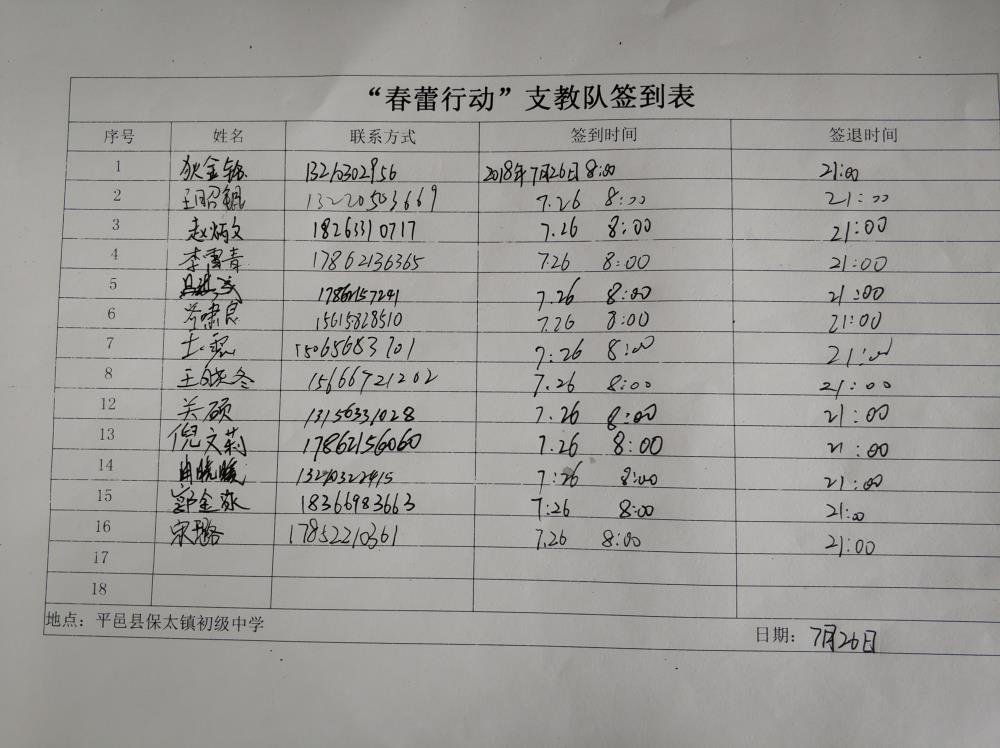 “春蕾行动”支教队签到表
序号 姓名 联系方式 签到时间 签退时间
1 狄金铭 13210302956 2018年7月26日 8:00 21:00
2 13220503669 7.26 8:00 21:00
3 赵炳文 18263310717 7.26 8:00 21:00
4 李雪青 17862136365 7.26 8:00 21:00
5 17862157241 7.26 8:00 21:00
6 15615828510 7.26 8:00 21:00
7 15065683701 7:26 8:00 21:00
8 王晓冬 15666721202 7.26 8:00 21:00
12 关硕 13156331028 7.26 8:00 21:00
13 倪文莉 17862156060 7.26 8:00 21:00
14 7:26 8:00 21:00
15 18366983663 7:26 8:00 21:00
16 宋璐 17852210361 7.26 8:00 21:00
17
18
地点：平邑县保太镇初级中学
日期：7月26日